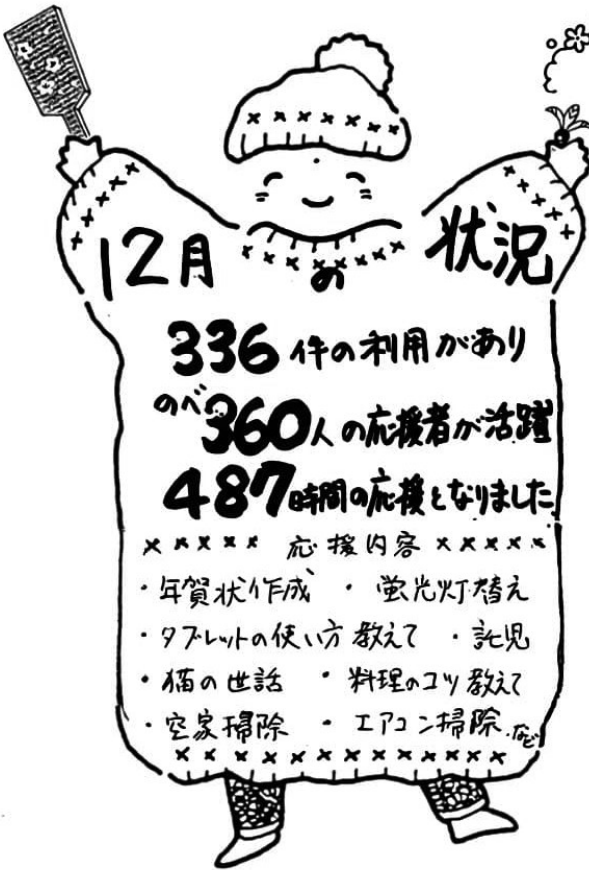 12月の状況
336件の利用があり
のべ360人の応援者が活躍
487時間の応援となりました
××××× 応援内容 ×××××
・年賀状作成 ・蛍光灯替え
・タブレットの使い方教えて ・託児
・猫の世話 ・料理のコツ教えて
・空家掃除 ・エアコン掃除 など